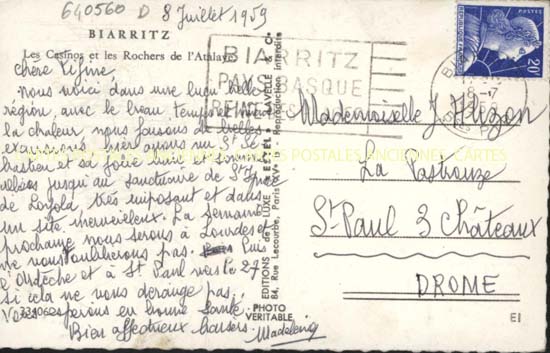 640560 D 8 Juillet 1959
BIARRITZ
Les Casinos et les Rochers de l'Atalaye
chère Fifine,
Nous voici dans une belle
région, avec le beau temps et même
la chaleur nous faisons de belles
excursions hier avons vu St Sé
bastien et sa jolie baie et sommes
allées jusqu'au sanctuaire de St Ignace
de Loyola très imposant et dans
un site merveilleux. La semaine
prochaine nous serons à Lourdes et
ne vous oublierons pas. Puis
l'Ardèche et à St Paul vers le 27
si cela ne vous dérange pas.
Vous espérons en bonne santé.
Bien affectueux baisers. Madeleine
3340602
BIARRITZ
PAYS BASQUE
EDITIONS de LUXE
84, Rue Lecourbe, Paris (XVe) - Reproduction interdite
PHOTO
VERITABLE
20F
8-7
Mademoiselle J. Huzon
La Pastouze
St Paul 3 Châteaux
DROME
EI
CARTES POSTALES ANCIENNES